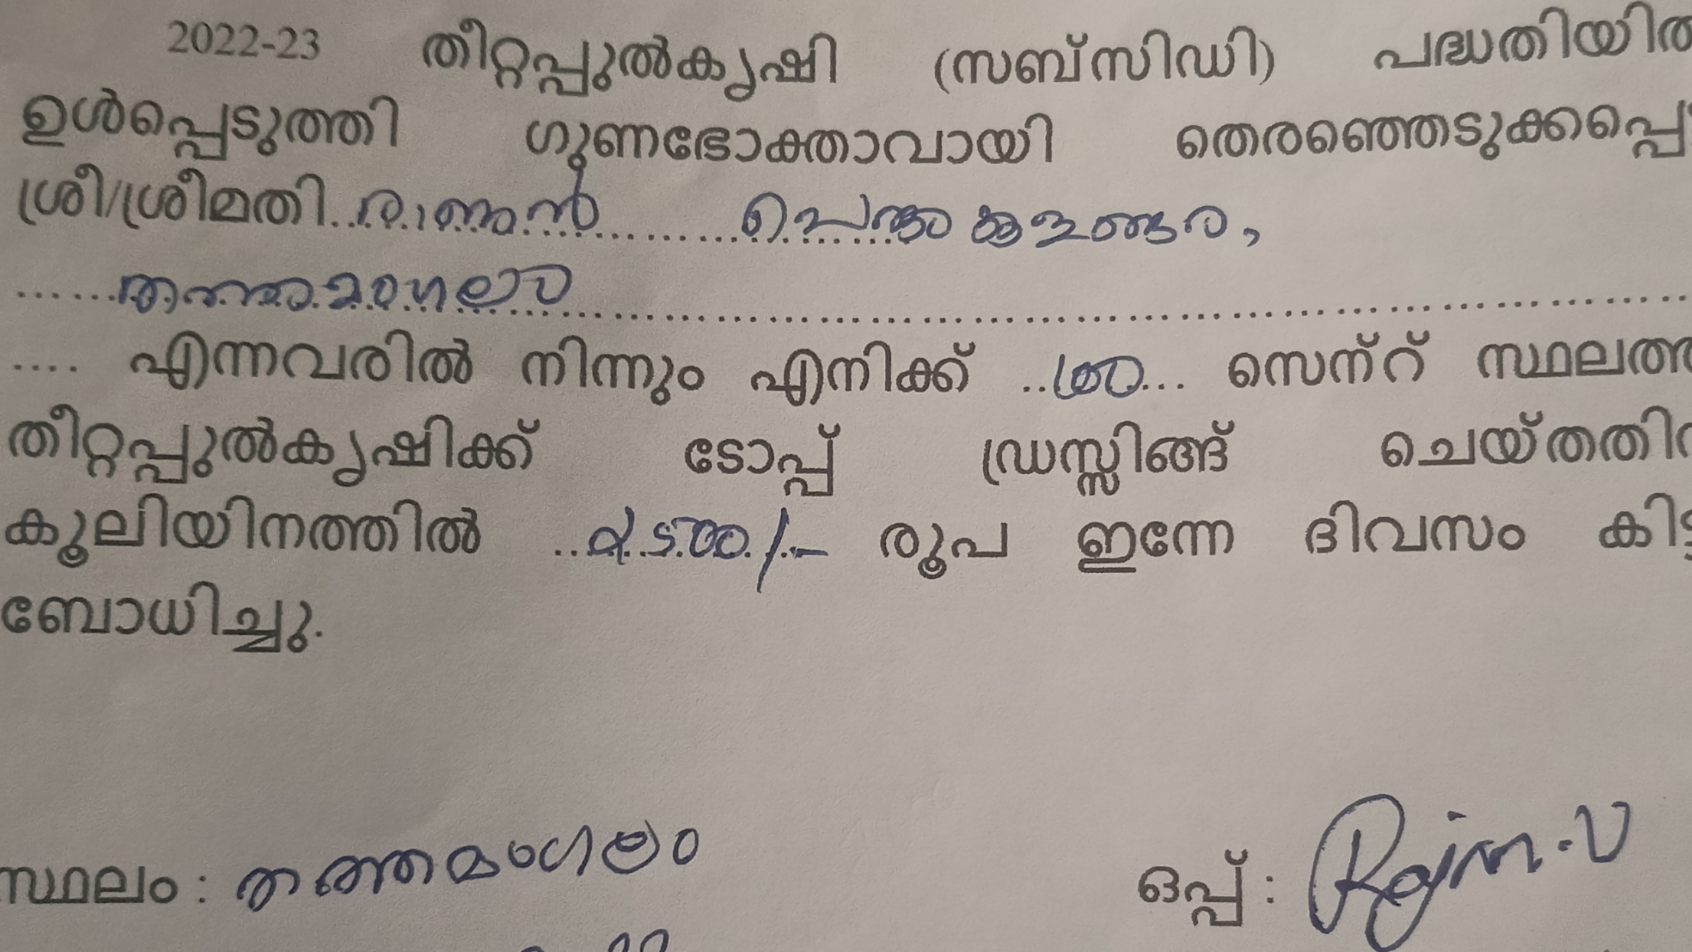 2022-23 തീറ്റപ്പുൽകൃഷി (സബ്സിഡി) പദ്ധതിയിൽ
ഉൾപ്പെടുത്തി ഗുണഭോക്താവായി തെരഞ്ഞെടുക്കപ്പെ
ശ്രീ/ശ്രീമതി..
......തത്തമംഗലം..........
.... എന്നവരിൽ നിന്നും എനിക്ക് ..... സെന്റ് സ്ഥലത്ത
തീറ്റപ്പുൽകൃഷിക്ക് ടോപ്പ് ഡ്രസ്സിങ്ങ് ചെയ്തതിന
കൂലിയിനത്തിൽ ../- രൂപ ഇന്നേ ദിവസം കിട്ട
ബോധിച്ചു.
സ്ഥലം : തത്തമംഗലം
ഒപ്പ് :